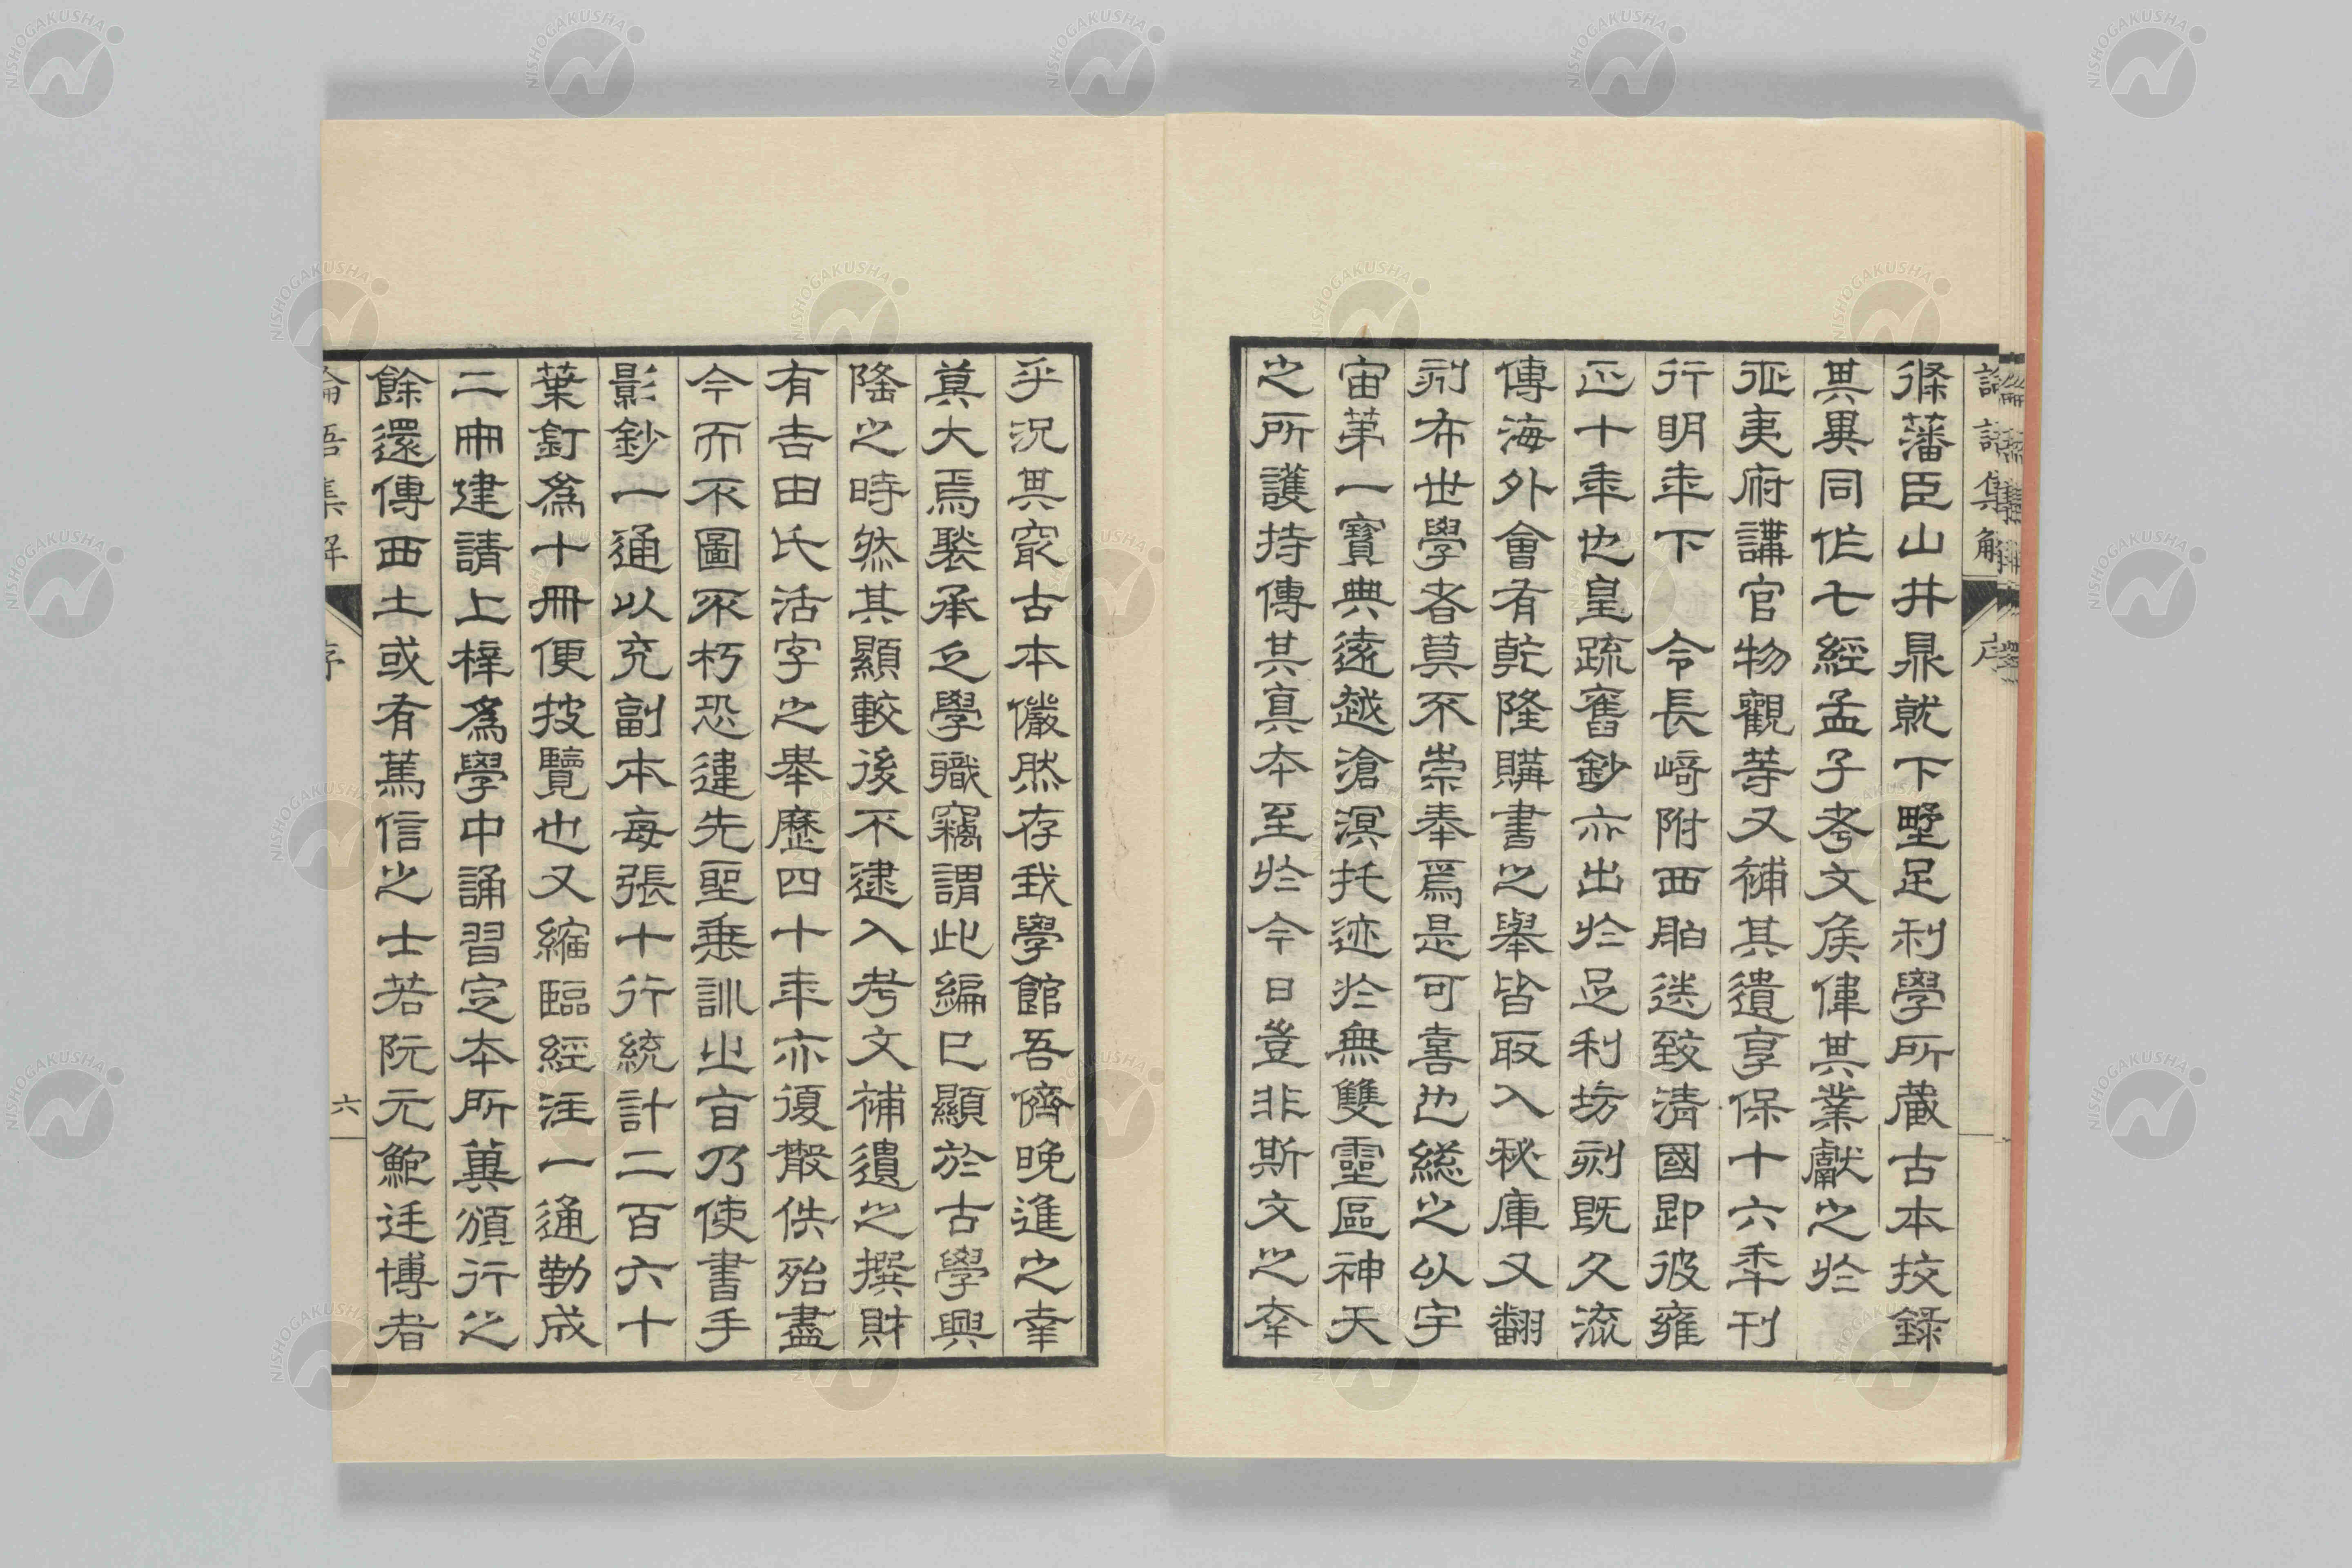 論語集解 序
條藩臣山井鼎就下墅足利學所藏古本挍錄
其異同作七經孟子考文矦偉其業獻之於
征夷府講官物觀等又補其遺享保十六秊刊
行明年下 令長﨑附西舶送致清國卽彼雍
正十年也皇疏舊鈔亦出於足利坊刻既久流
傳海外會有乾隆購書之舉皆取入秘庫又翻
刻布世學者莫不崇奉焉是可喜也總之以宇
宙第一寶典遠越滄溟托迹於無雙靈區神天
之所護持傳其真本至於今日豈非斯文之幸
乎況其最古本儼然存我學館吾儕晚進之幸
莫大焉褧承乏學職竊謂此編已顯於古學興
隆之時然其顯較後不逮入考文補遺之撰財
有吉田氏活字之舉歷四十年亦復散佚殆盡
今而不圖不朽恐違先聖乗訓之旨乃使書手
影鈔一通以充副本每張十行統計二百六十
葉釘為十冊便披覽也又縮臨經注一通勒成
二冊建請上梓為學中誦習定本所冀頒行之
餘還傳西土或有篤信之士若阮元鮑廷博者
論語集解 序 六
NISHOGAKUSHA